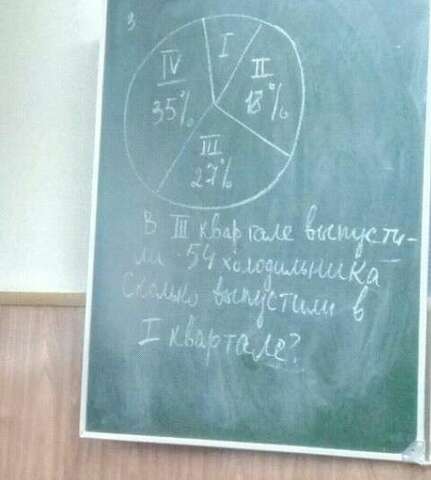 3
I
II
18%
IV
35%
III
27%
В III квартале выпусти-
ли 54 холодильника
Сколько выпустили в
I квартале?